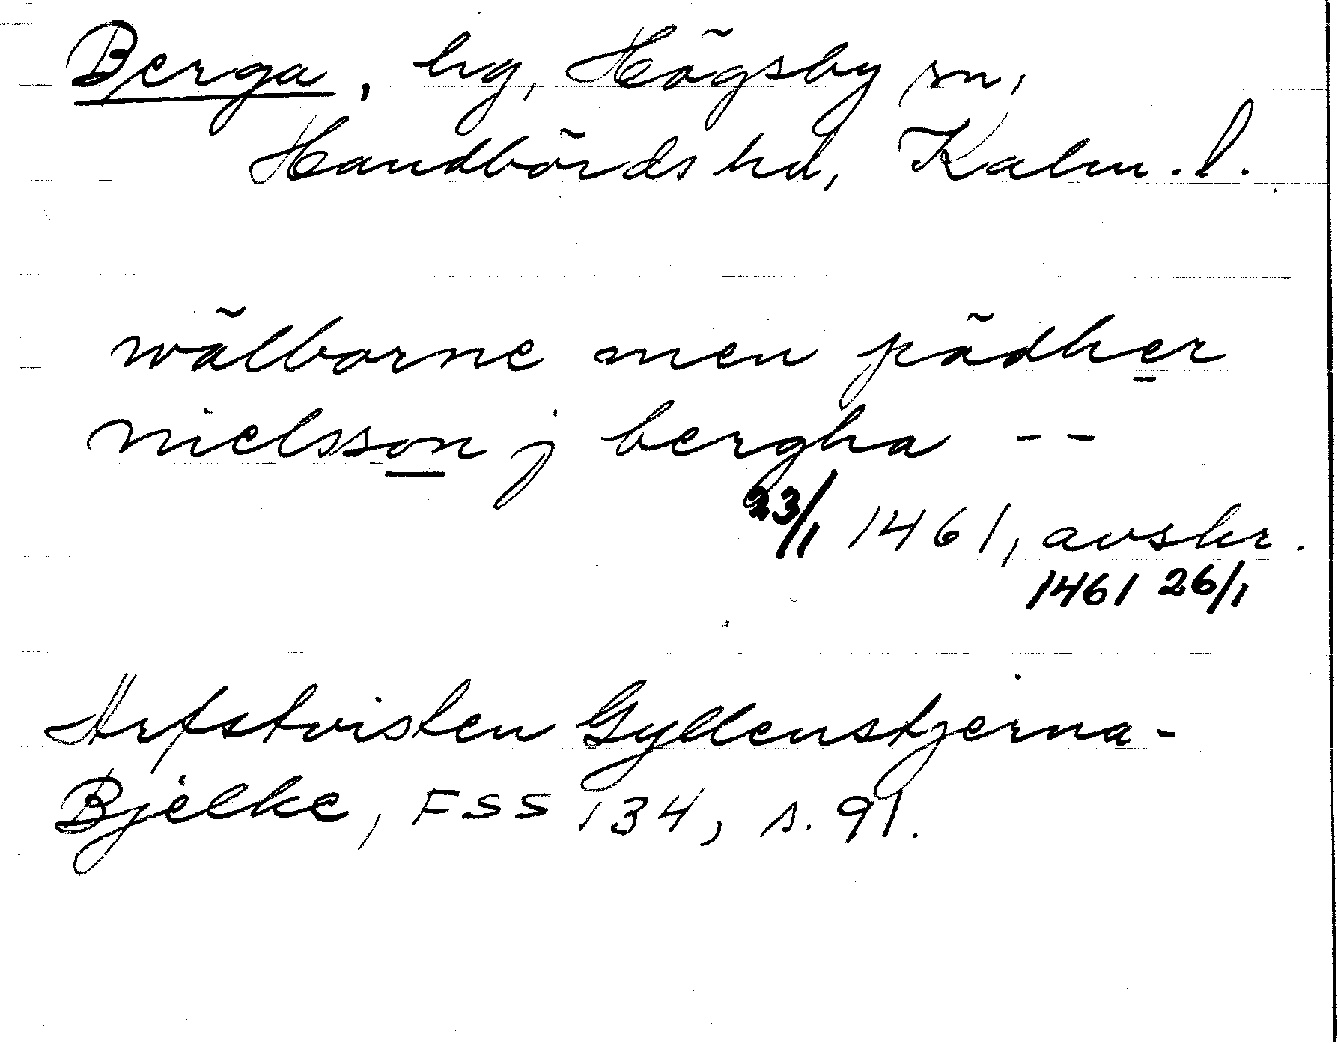 Berga, hg, Högsby sn,
Handbörds hd, Kalm. l.
wälborne men pädher
nielsson j bergha --
23/1 1461, avskr.
1461 26/1
Arfstvisten Gyllenstjerna-
Bjelke, FSS 134, s. 91.